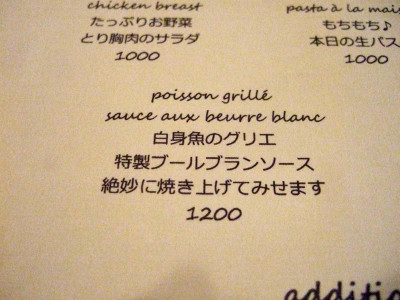 chicken breast
たっぷりお野菜
とり胸肉のサラダ
1000
pasta à la
もちもち♪
本日の生パス
1000
poisson grillé
sauce aux beurre blanc
白身魚のグリエ
特製ブールブランソース
絶妙に焼き上げてみせます
1200